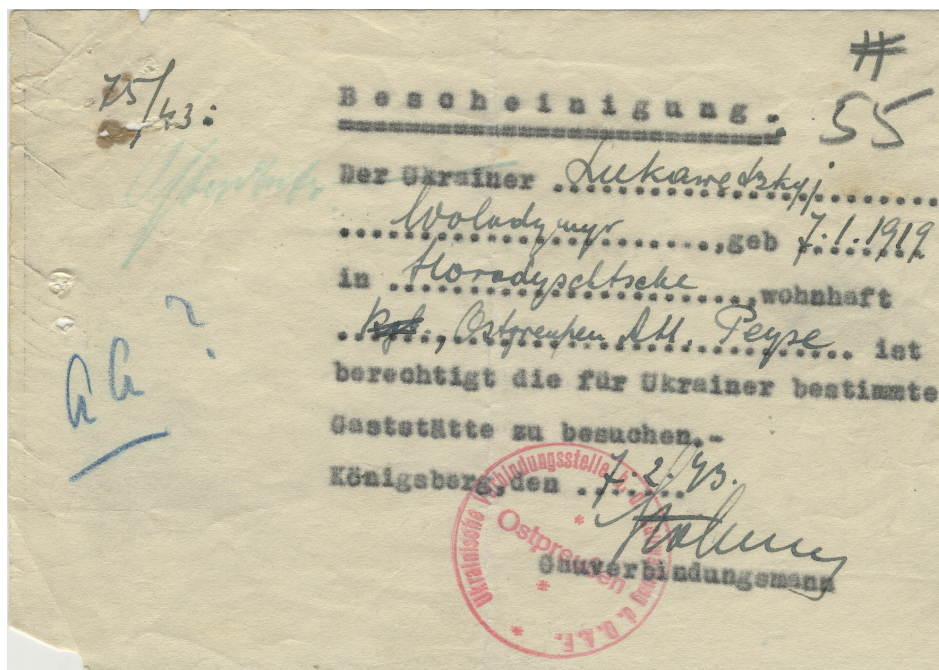 #
55
75/43:
Bescheinigung.
Der Ukrainer Lukawedzkyj
Wolodymyr, geb 7.1.1919
in Horodyschtsche, wohnhaft
Kgb., Ostpreußen Peyse ist
berechtigt die für Ukrainer bestimmte
Gaststätte zu besuchen.-
Königsberg, den 7.2.43.
Gauverbindungsmann
Ukrainische Verbindungsstelle d. D.A.F.
Ostpreußen
?